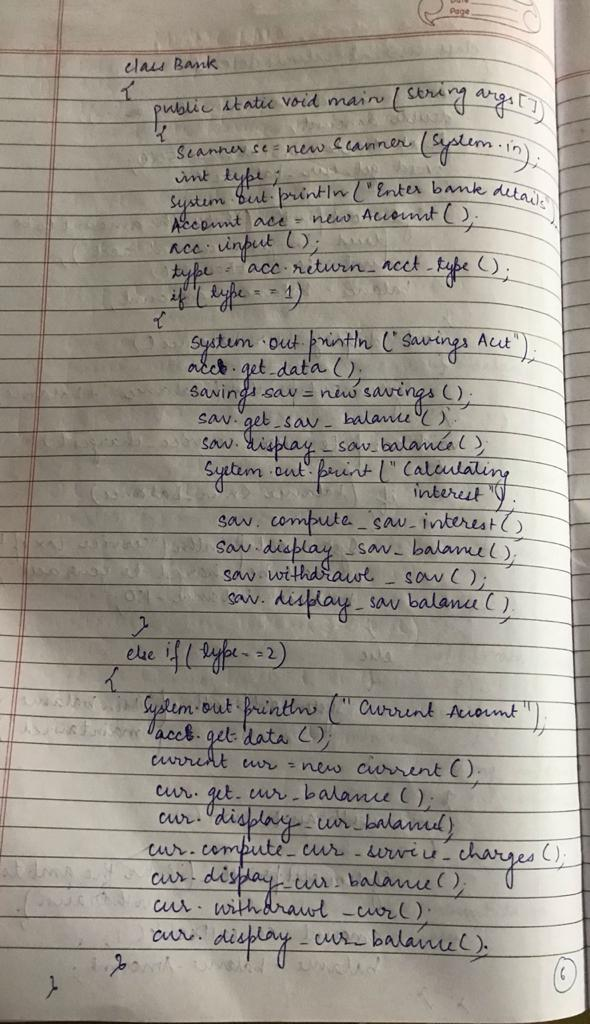 Date
Page
class Bank
{
public static void main (String args[])
{
Scanner sc = new Scanner (System.in);
int type;
System.out.println ("Enter bank details");
Account acc = new Account ();
acc.input ();
type = acc.return_acct_type ();
if (type == 1)
{
System.out.println ("Savings Acct");
acc.get_data ();
savings sav = new savings ();
sav.get_sav_balance ();
sav.display_sav_balance ();
System.out.print (" Calculating
interest");
sav.compute_sav_interest ()
sav.display_sav_balance ();
sav.withdrawl_sav ();
sav.display_sav balance ().
}
else if (type == 2)
{
System.out.println (" Current Account");
acc.get.data ();
current cur = new current ();
cur.get_cur_balance ();
cur.display_cur_balance()
cur.compute_cur_service_charges ();
cur.display_cur_balance ();
cur.withdrawl_cur ();
cur.display_cur_balance ().
}
}
6